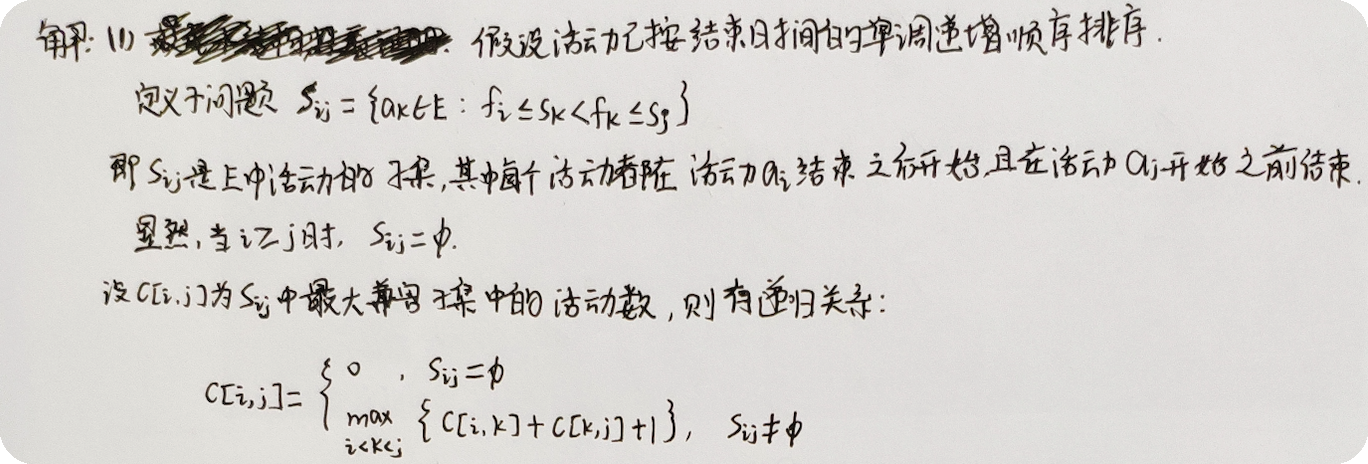 解: (1) 假设活动已按结束时间的单调递增顺序排序.
定义子问题 Sij = {ak∈E : fi ≤ sk < fk ≤ sj}
即 Sij 是E中活动的子集,其中每个活动都在活动ai结束之后开始,且在活动aj开始之前结束.
显然,当 i≥j时, Sij=φ.
设C[i,j]为Sij中最大兼容子集中的活动数,则有递归关系:
C[i,j]= { 0 , Sij=φ
max i<k<j {C[i,k]+C[k,j]+1}, Sij≠φ